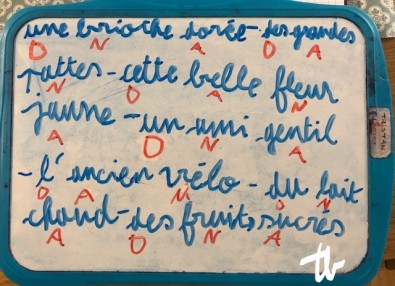 une brioche dorée - des grandes
D N A D A
pattes - cette belle fleur
N D A N
jaune - un ami gentil
A D N A
- l'ancien vélo - du lait
D A N D N
chaud - des fruits sucrés
A D N A
TRISTAN
tb